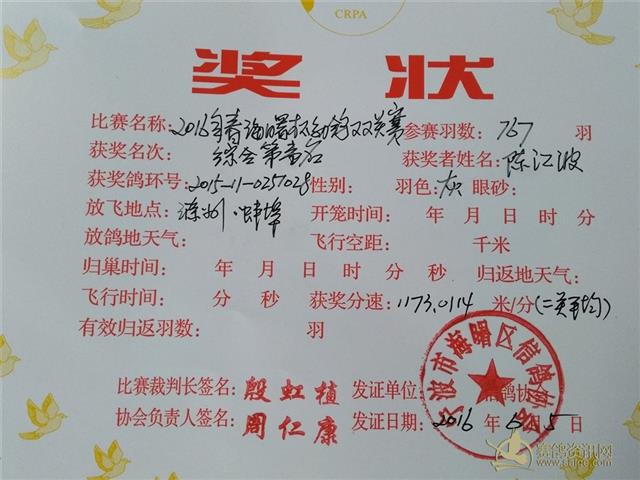 CRPA
奖状
比赛名称：2016年春海曙 双关赛 参赛羽数：767 羽
获奖名次：综合第壹名 获奖者姓名：陈江波
获奖鸽环号：2015-11-0257028 性别： 羽色：灰 眼砂：
放飞地点：滁州、蚌埠 开笼时间： 年 月 日 时 分
放鸽地天气： 飞行空距： 千米
归巢时间： 年 月 日 时 分 秒 归返地天气：
飞行时间： 分 秒 获奖分速：1173.0114 米/分(二关平均)
有效归返羽数： 羽
比赛裁判长签名：殷虹植 发证单位： 信鸽协会
协会负责人签名：周仁康 发证日期：2016 年 5 日
宁波市海曙区信鸽协会
赛鸽资讯网
www.saige.com